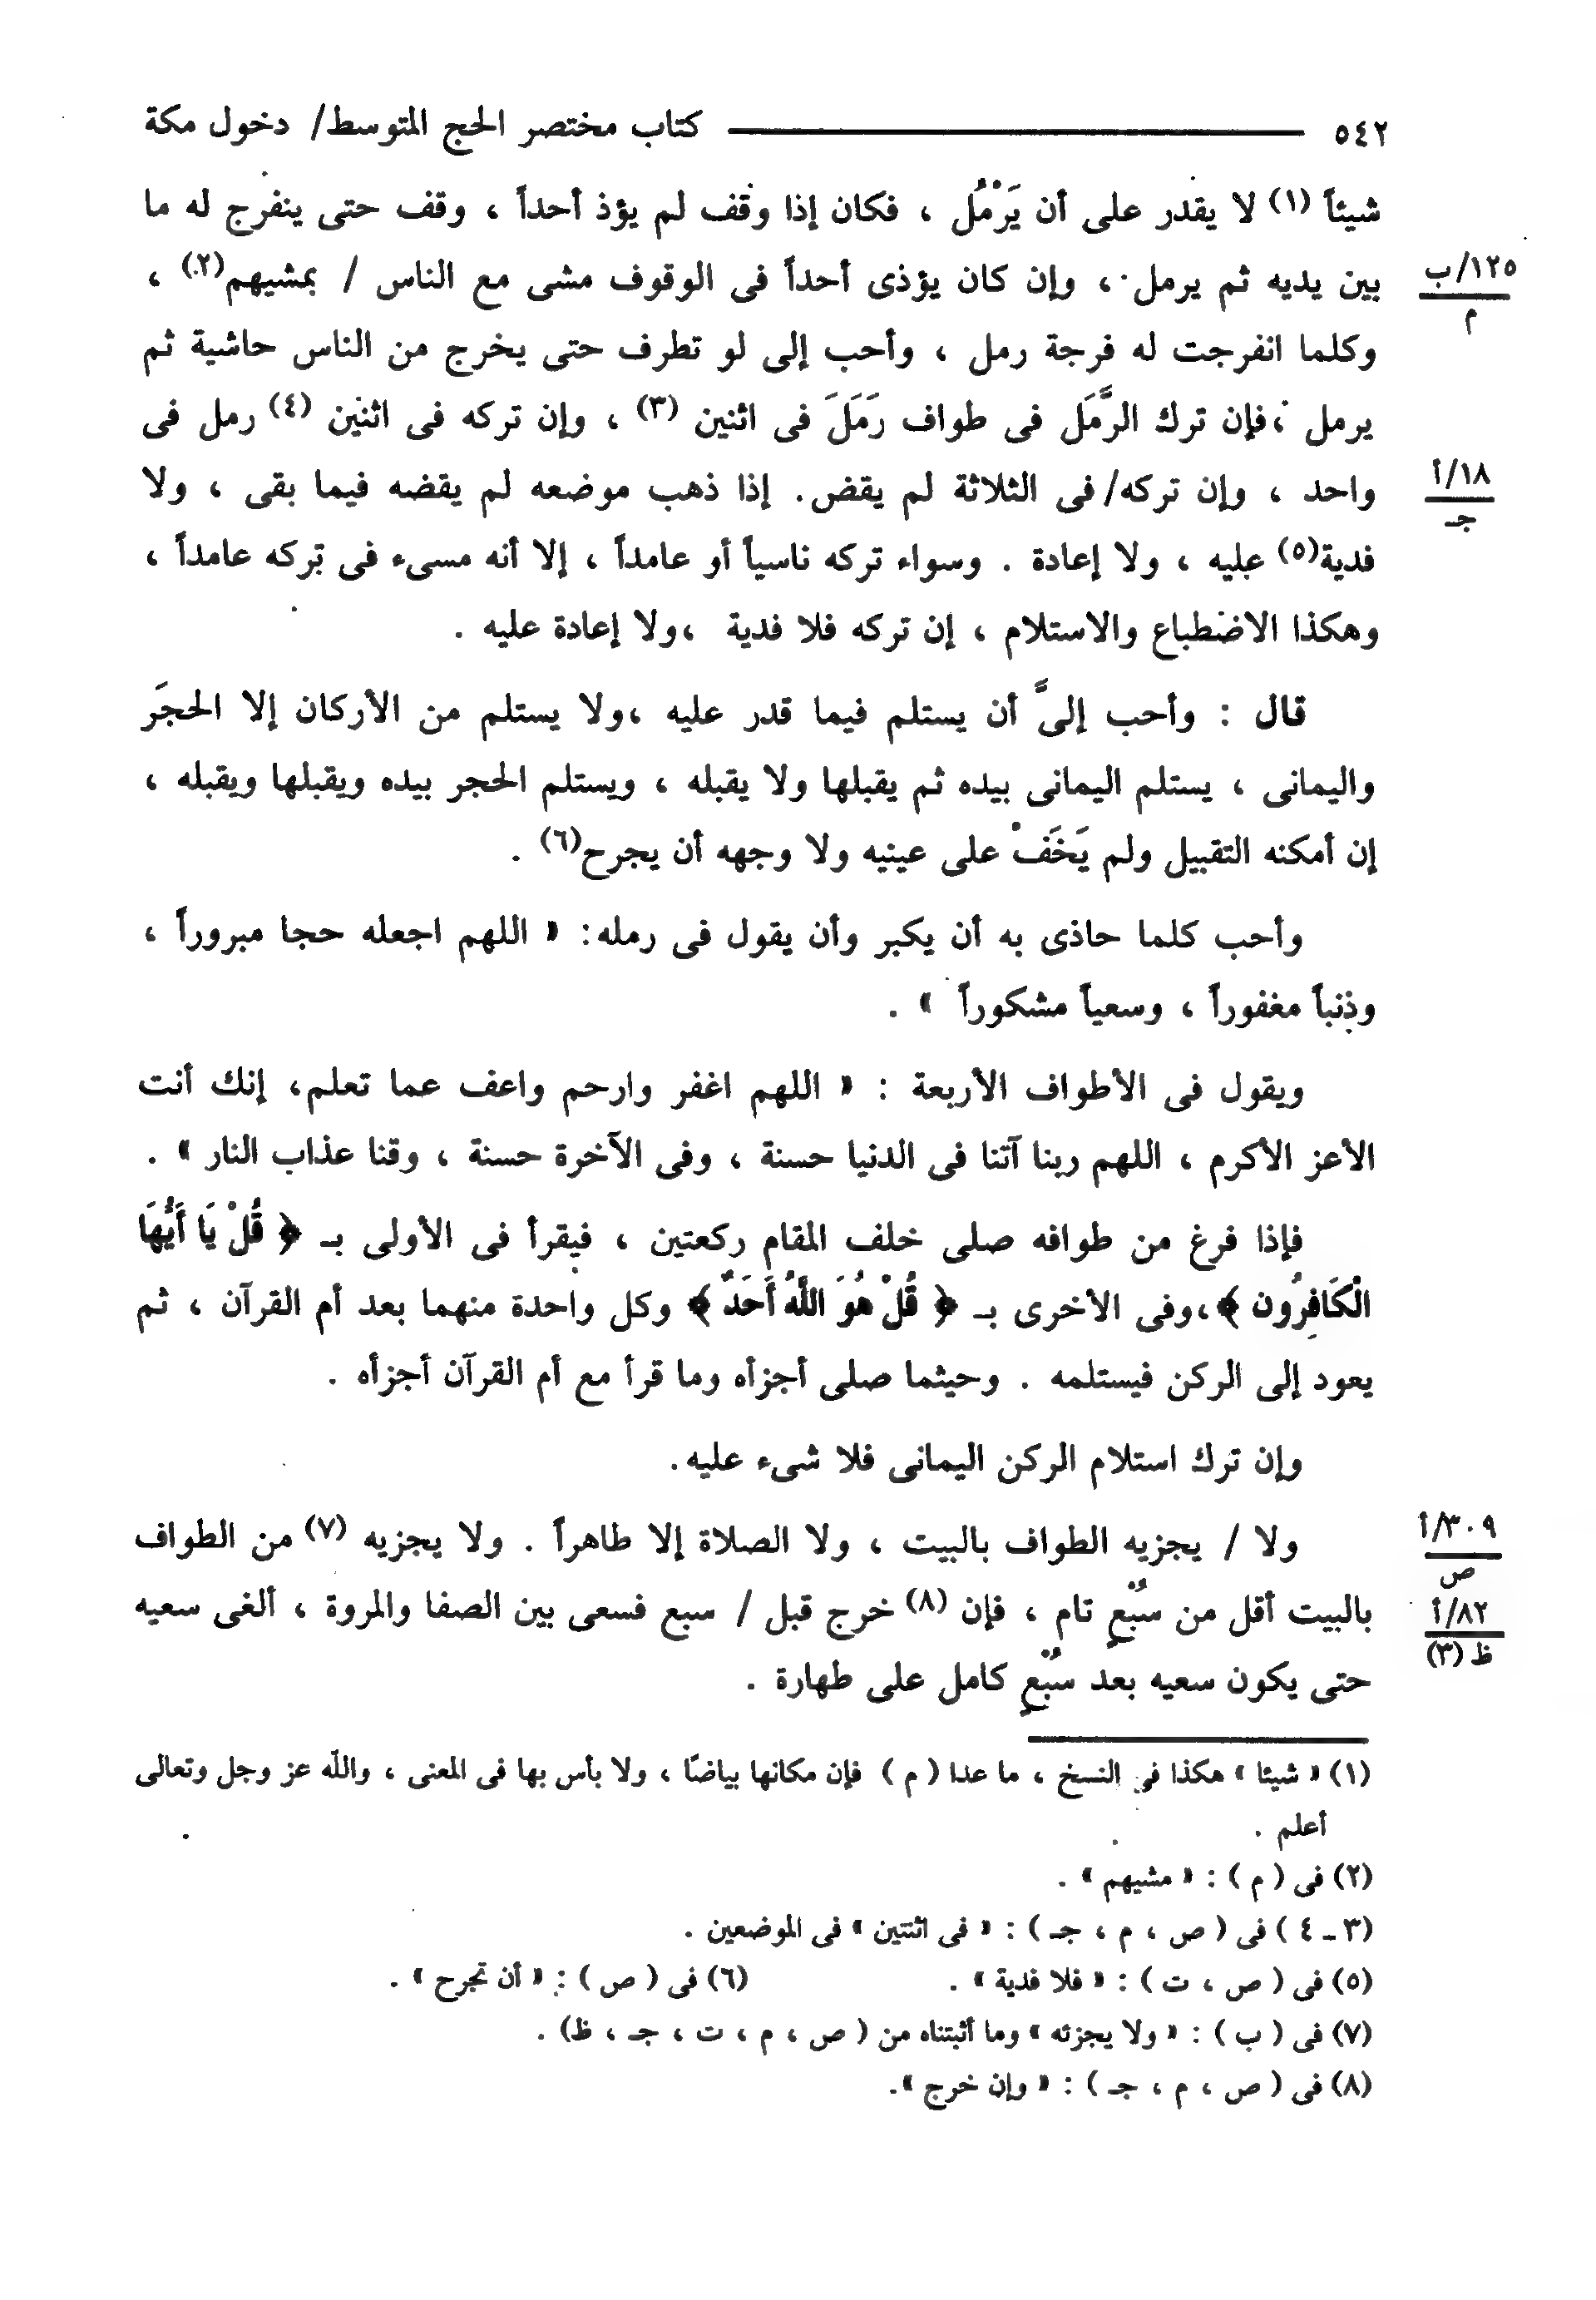 ٥٤٢ كتاب مختصر الحج المتوسط/ دخول مكة
شيئاً (١) لا يقدر على أن يَرْمُل ، فكان إذا وقف لم يؤذ أحداً ، وقف حتى ينفرج له ما
بين يديه ثم يرمل ، وإن كان يؤذى أحداً فى الوقوف مشى مع الناس / بمشيهم(٢) ،
١٢٥/ب
م
وكلما انفرجت له فرجة رمل ، وأحب إلى لو تطرف حتى يخرج من الناس حاشية ثم
يرمل ،فإن ترك الرَّمَل فى طواف رَمَلَ فى اثنين (٣) ، وإن تركه فى اثنين (٤) رمل فى
واحد ، وإن تركه/ فى الثلاثة لم يقض. إذا ذهب موضعه لم يقضه فيما بقى ، ولا
١٨/أ
جـ
فدية(٥) عليه ، ولا إعادة . وسواء تركه ناسياً أو عامداً ، إلا أنه مسىء فى تركه عامداً ،
وهكذا الاضطباع والاستلام ، إن تركه فلا فدية ،ولا إعادة عليه .
قال : وأحب إلىَّ أن يستلم فيما قدر عليه ،ولا يستلم من الأركان إلا الحجَر
واليمانى ، يستلم اليمانى بيده ثم يقبلها ولا يقبله ، ويستلم الحجر بيده ويقبلها ويقبله ،
إن أمكنه التقبيل ولم يَخَفْ على عينيه ولا وجهه أن يجرح(٦) .
وأحب كلما حاذى به أن يكبر وأن يقول فى رمله: « اللهم اجعله حجا مبروراً ،
وذنباً مغفوراً ، وسعياً مشكوراً » .
ويقول فى الأطواف الأربعة : « اللهم اغفر وارحم واعف عما تعلم، إنك أنت
الأعز الأكرم ، اللهم ربنا آتنا فى الدنيا حسنة ، وفى الآخرة حسنة ، وقنا عذاب النار » .
فإذا فرغ من طوافه صلى خلف المقام ركعتين ، فيقرأ فى الأولى بـ ﴿ قُلْ يَا أَيُّهَا
الْكَافِرُون ﴾،وفى الأخرى بـ ﴿ قُلْ هُوَ اللَّهُ أَحَدٌ ﴾ وكل واحدة منهما بعد أم القرآن ، ثم
يعود إلى الركن فيستلمه . وحيثما صلى أجزأه وما قرأ مع أم القرآن أجزأه .
وإن ترك استلام الركن اليمانى فلا شىء عليه.
ولا / يجزيه الطواف بالبيت ، ولا الصلاة إلا طاهراً . ولا يجزيه (٧) من الطواف
٣٠٩/أ
ص
بالبيت أقل من سُبْعٍ تام ، فإن (٨) خرج قبل / سبع فسعى بين الصفا والمروة ، ألغى سعيه
٨٢/أ
ظ (٣)
حتى يكون سعيه بعد سُبْعٍ كامل على طهارة .
(١) « شيئا » هكذا فى النسخ ، ما عدا ( م ) فإن مكانها بياضًا ، ولا بأس بها فى المعنى ، والله عز وجل وتعالى
أعلم .
(٢) فى ( م ) : « مشيهم » .
(٣ ـ ٤ ) فى ( ص ، م ، جـ ) : « فى اثنتين » فى الموضعين .
(٥) فى ( ص ، ت ) : « فلا فدية » . (٦) فى ( ص ) : « أن تجرح » .
(٧) فى ( ب ) : « ولا يجزئه » وما أثبتناه من ( ص ، م ، ت ، جـ ، ظ) .
(٨) فى ( ص ، م ، جـ ) : « وإن خرج ».